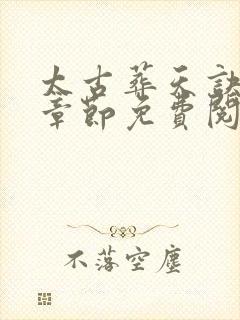 太古葬天訣
章節免費閱
不落空塵